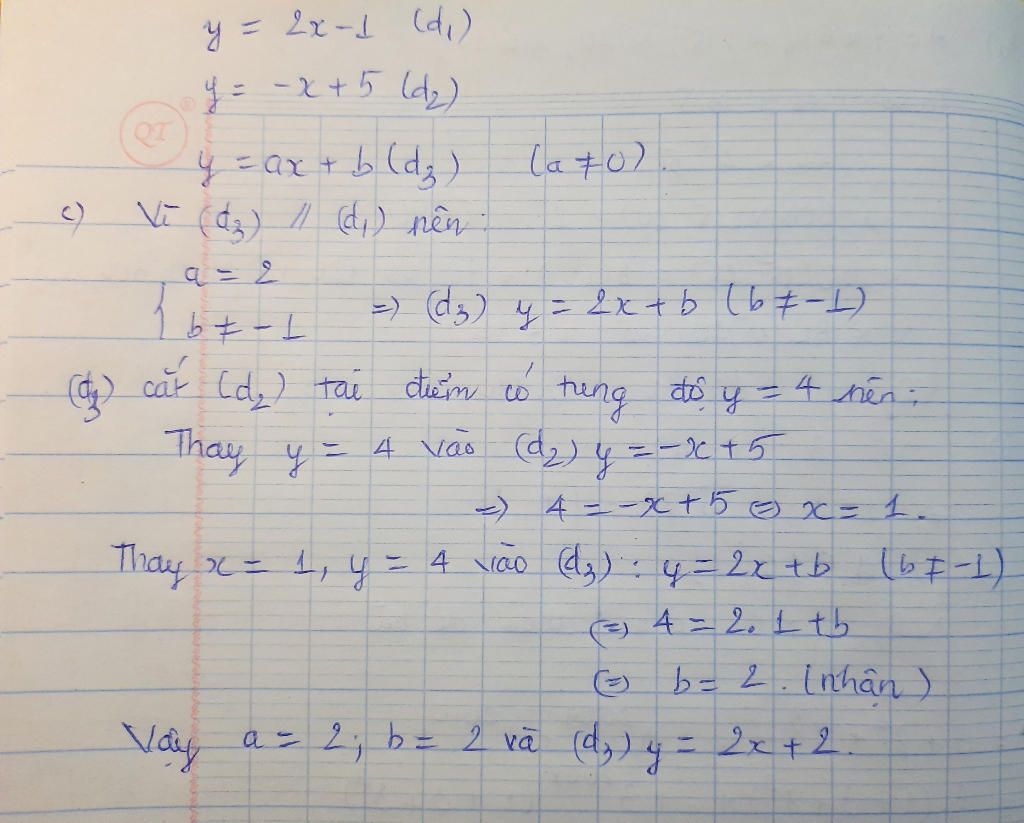 y = 2x-1 (d₁)
y = -x+5 (d₂)
QT ®
y = ax + b (d₃) (a ≠ 0).
c) Vì (d₃) // (d₁) nên:
{ a = 2
b ≠ -1 => (d₃) y = 2x + b (b ≠ -1)
(d₃) cắt (d₂) tại điểm có tung độ y = 4 nên:
Thay y = 4 vào (d₂) y = -x+5
=> 4 = -x+5 <=> x = 1.
Thay x = 1, y = 4 vào (d₃) : y = 2x+b (b ≠ -1)
<=> 4 = 2.1+b
<=> b = 2. (nhận)
Vậy a = 2; b = 2 và (d₃) y = 2x+2.